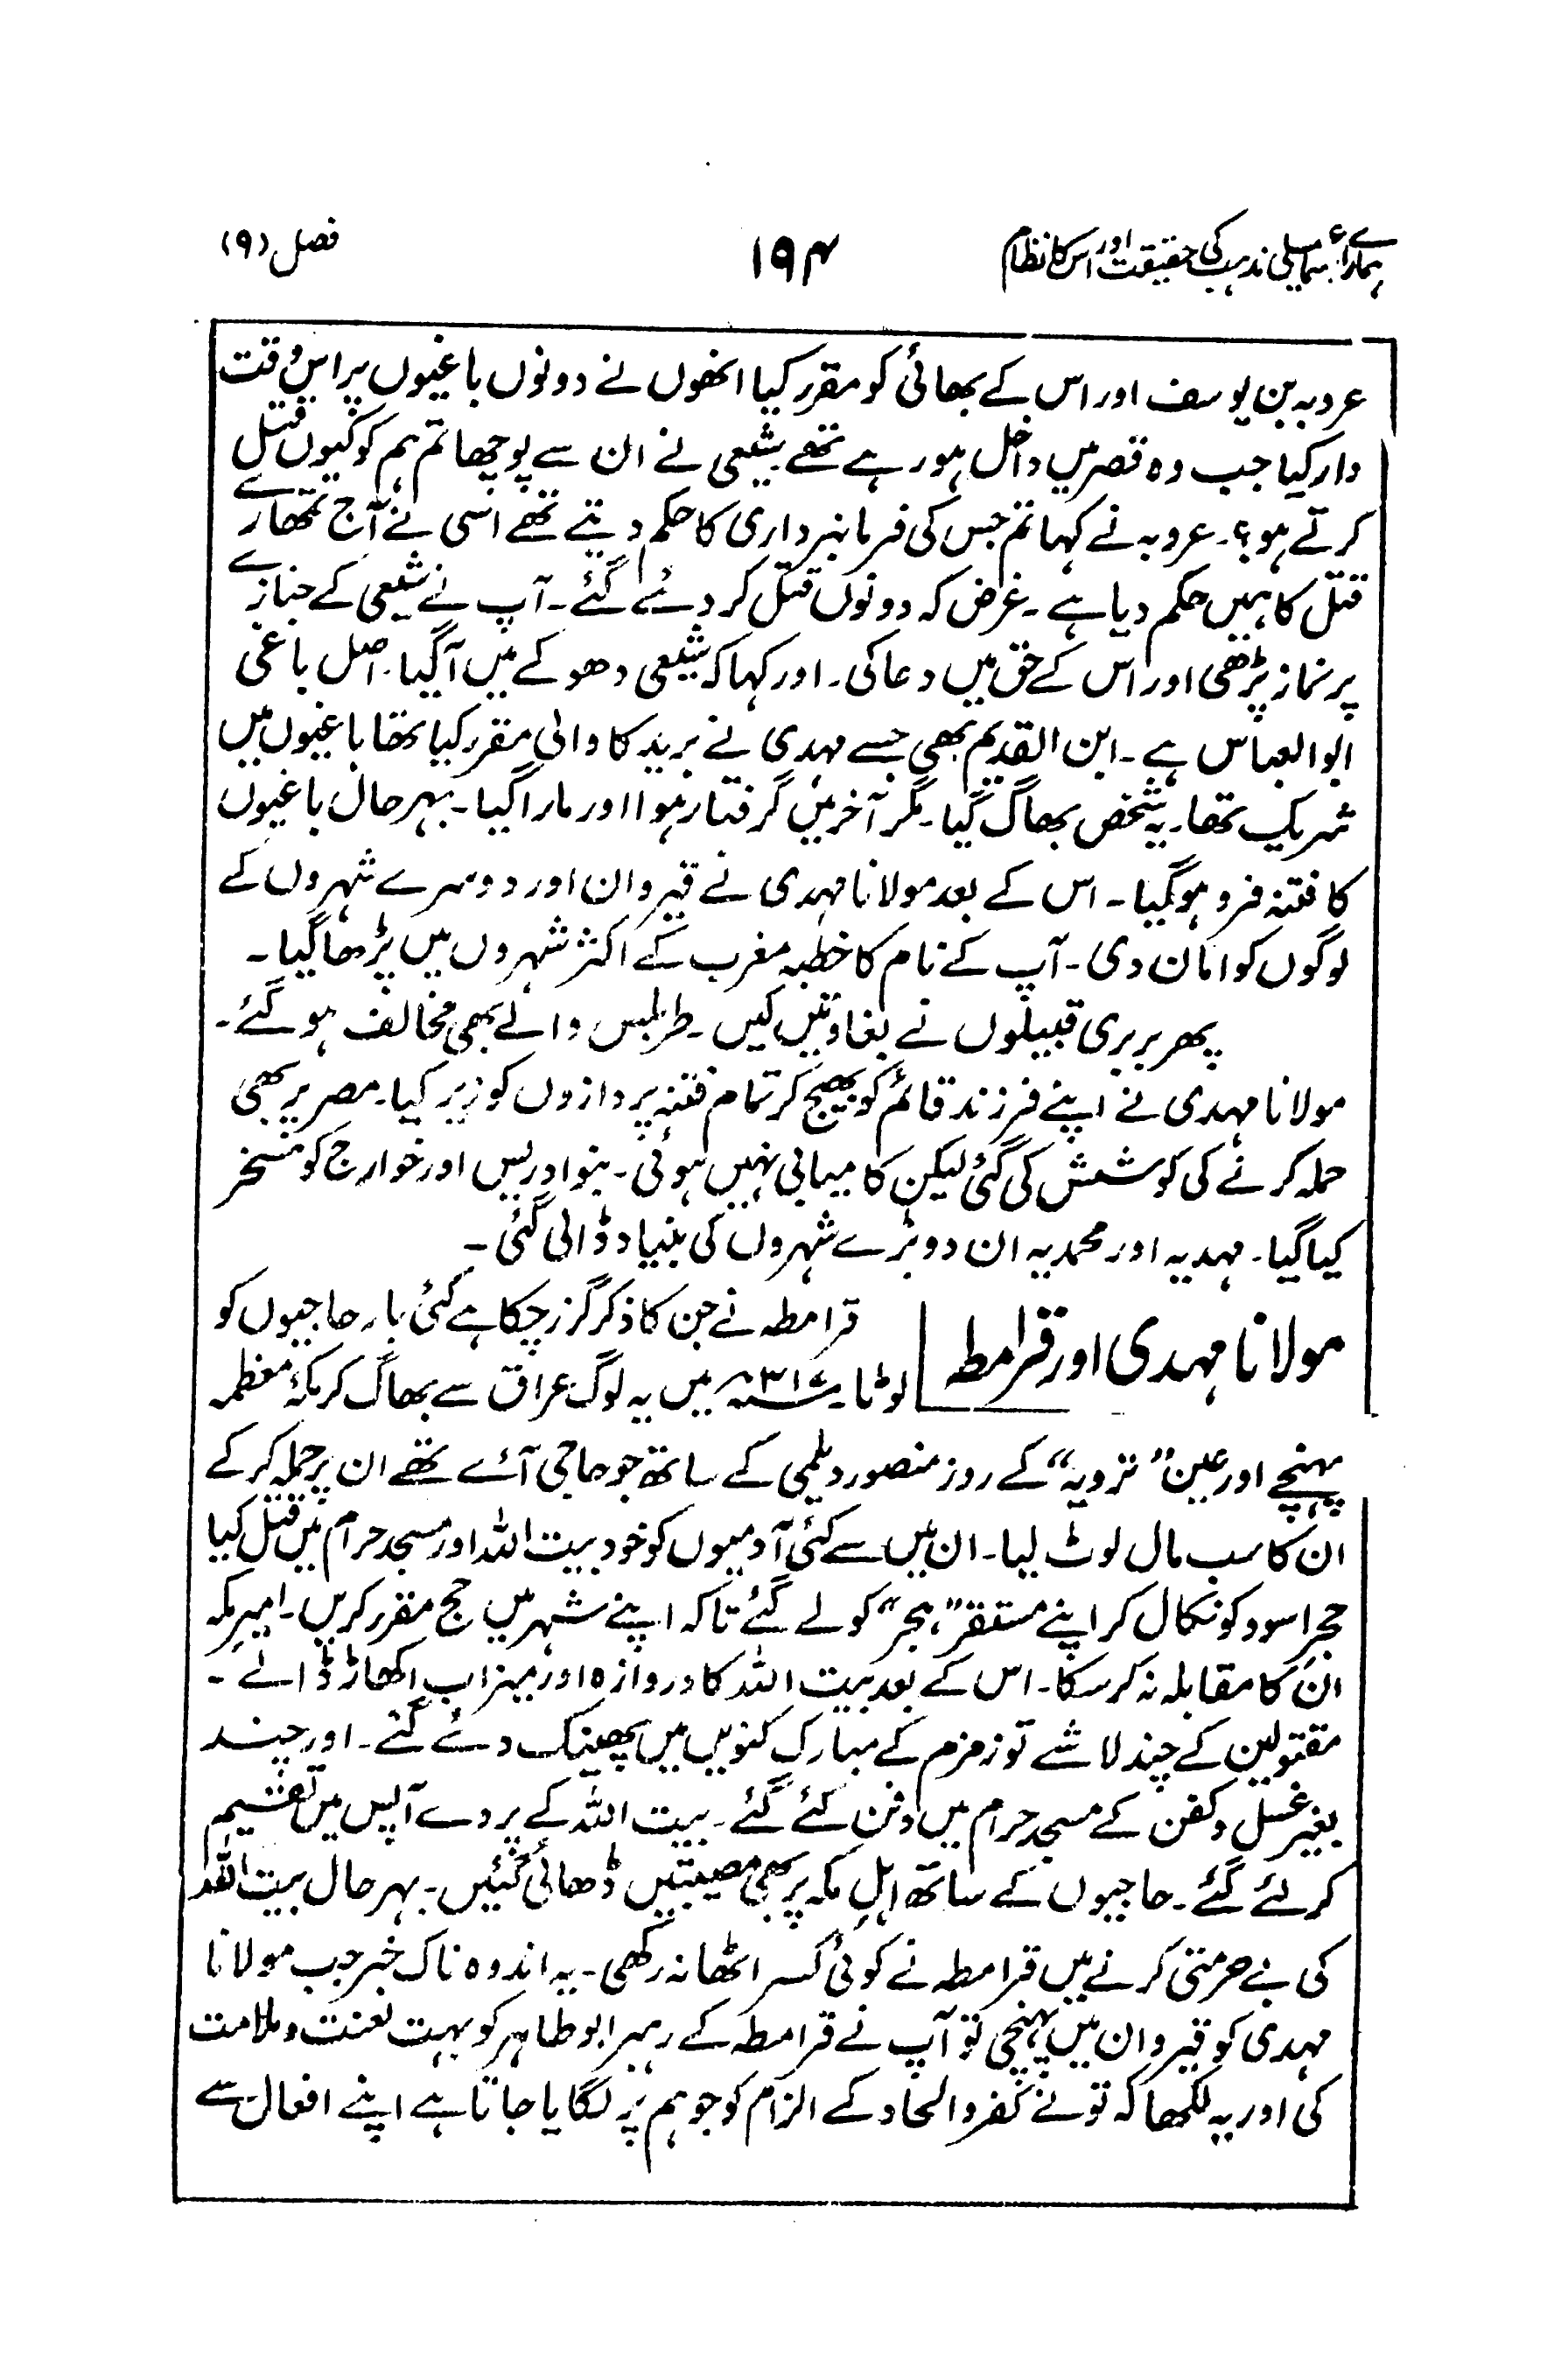 ہمارے اسماعیلی مذہب کی حقیقت اور اس کا نظام ۱۹۴ فصل (۹)
عروبہ بن یوسف اور اس کے بھائی کو مقرر کیا انھوں نے دونوں باغیوں پر اس وقت
وار کیا جب وہ قصر میں داخل ہو رہے تھے شیعی نے ان سے پوچھا تم ہم کو کیوں قتل
کرتے ہو؟۔ عروبہ نے کہا تم جس کی فرمانبرداری کا حکم دیتے تھے اسی نے آج تمھارے
قتل کا ہمیں حکم دیا ہے ۔ غرض کہ دونوں قتل کر دئے گئے ۔ آپ نے شیعی کے جنازے
پر نماز پڑھی اور اس کے حق میں دعا کی ۔ اور کہا کہ شیعی دھوکے میں آگیا۔ اصل باغی
ابوالعباس ہے ۔ ابن القدیم بھی جسے مہدی نے برید کا والی مقرر کیا تھا باغیوں میں
شریک تھا۔ یہ شخص بھاگ گیا۔ مگر آخر میں گرفتار ہوا اور مارا گیا ۔ بہر حال باغیوں
کا فتنہ فرو ہوگیا ۔ اس کے بعد مولانا مہدی نے قیروان اور دوسرے شہروں کے
لوگوں کو امان دی ۔ آپ کے نام کا خطبہ مغرب کے اکثر شہروں میں پڑھا گیا ۔
پھر بربری قبیلوں نے بغاوتیں کیں ۔ طرابلس والے بھی مخالف ہو گئے ۔
مولانا مہدی نے اپنے فرزند قائم کو بھیج کر تمام فتنہ پردازوں کو زیر کیا۔ مصر پر بھی
حملہ کرنے کی کوشش کی گئی لیکن کامیابی نہیں ہوئی ۔ بنو ادریس اور خوارج کو مسخر
کیا گیا۔ مہدیہ اور محمدیہ ان دو بڑے شہروں کی بنیاد ڈالی گئی ۔
مولانا مہدی اور قرامطہ
قرامطہ نے جن کا ذکر گزر چکا ہے کئی بار حاجیوں کو
لوٹا ۔ ۳۱۷ھ میں یہ لوگ عراق سے بھاگ کر مکۂ معظمہ
پہنچے اور عین ”ترویہ“ کے روز منصور دیلمی کے ساتھ جو حاجی آئے تھے ان پر حملہ کر کے
ان کا سب مال لوٹ لیا۔ ان میں سے کئی آدمیوں کو خود بیت اللہ اور مسجد حرام میں قتل کیا
حجر اسود کو نکال کر اپنے مستقر ”ہجر“ کو لے گئے تاکہ اپنے شہر میں حج مقرر کریں۔ امیر مکہ
ان کا مقابلہ نہ کر سکا۔ اس کے بعد بیت اللہ کا دروازہ اور میزاب اکھاڑ ڈالے ۔
مقتولین کے چند لاشے تو زمزم کے مبارک کنویں میں پھینک دئے گئے ۔ اور چند
بغیر غسل و کفن کے مسجد حرام میں دفن کئے گئے ۔ بیت اللہ کے پردے آپس میں تقسیم
کر لئے گئے ۔ حاجیوں کے ساتھ اہلِ مکہ پر بھی مصیبتیں ڈھائی گئیں۔ بہر حال بیت اللہ
کی بے حرمتی کرنے میں قرامطہ نے کوئی کسر اٹھا نہ رکھی ۔ یہ اندوہ ناک خبر جب مولانا
مہدی کو قیروان میں پہنچی تو آپ نے قرامطہ کے رہبر ابوطاہر کو بہت لعنت و ملامت
کی اور یہ لکھا کہ تو نے کفر و الحاد کے الزام کو جو ہم پر لگایا جاتا ہے اپنے افعال سے